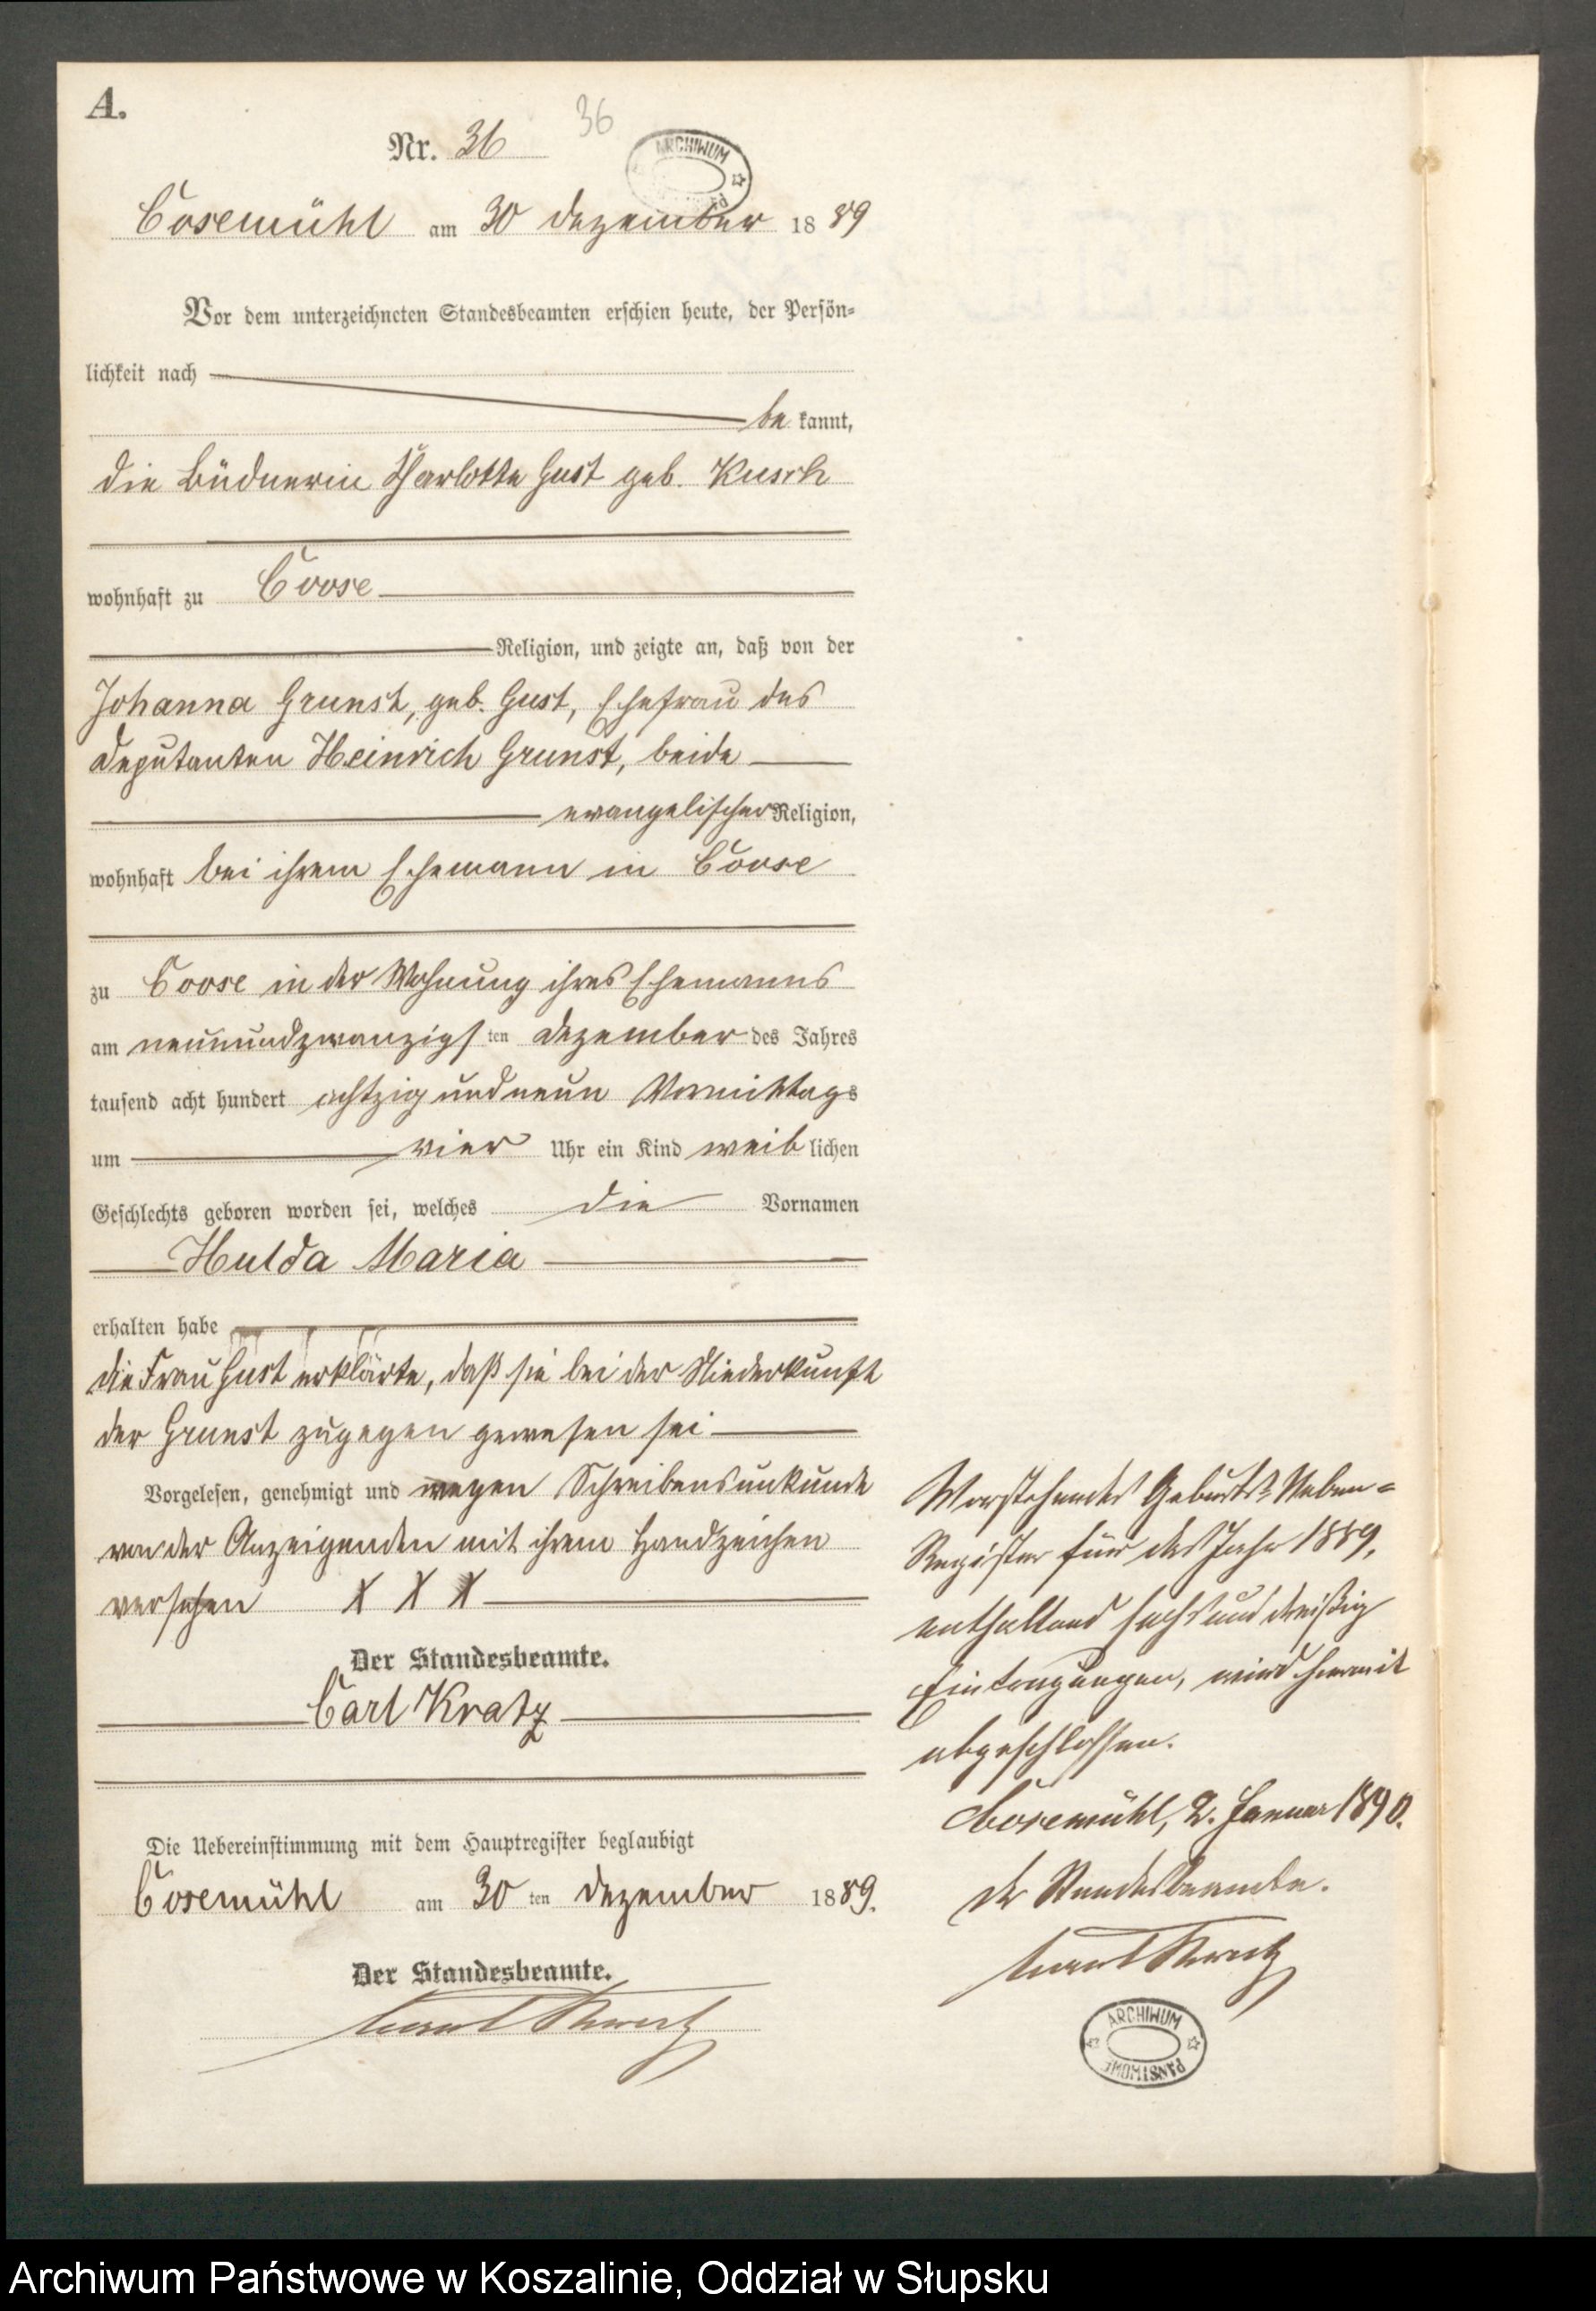 A.
Nr. 36
36
ARCHIWUM
Cosemühl am 30 Dezember 1889
Vor dem unterzeichneten Standesbeamten erschien heute, der Persön-
lichkeit nach
be kannt,
die Büdnerin Charlotte Gust geb. Kusch
wohnhaft zu Coose
Religion, und zeigte an, daß von der
Johanna Grunst, geb. Gust, Ehefrau des
Deputanten Heinrich Grunst, beide
evangelischer Religion,
wohnhaft bei ihrem Ehemann in Coose
zu Coose in der Wohnung ihres Ehemanns
am neunundzwanzigsten Dezember des Jahres
tausend acht hundert achtzig und neun Vormittags
um vier Uhr ein Kind weiblichen
Geschlechts geboren worden sei, welches die Vornamen
Hulda Maria
erhalten habe
die Frau Gust erklärte, daß sie bei der Niederkunft
der Grunst zugegen gewesen sei
Vorgelesen, genehmigt und wegen Schreibensunkunde
von der Anzeigenden mit ihrem Handzeichen
versehen X X X
Der Standesbeamte.
Carl Kratz
Die Uebereinstimmung mit dem Hauptregister beglaubigt
Cosemühl am 30 ten Dezember 1889.
Der Standesbeamte.
Carl Kratz
Vorstehendes Geburts-Neben-
Register für das Jahr 1889,
enthaltend sechs und dreißig
Eintragungen, wird hiermit
abgeschlossen.
Cosemühl, 2. Januar 1890.
Der Standesbeamte.
Carl Kratz
ARCHIWUM PAŃSTWOWE
Archiwum Państwowe w Koszalinie, Oddział w Słupsku